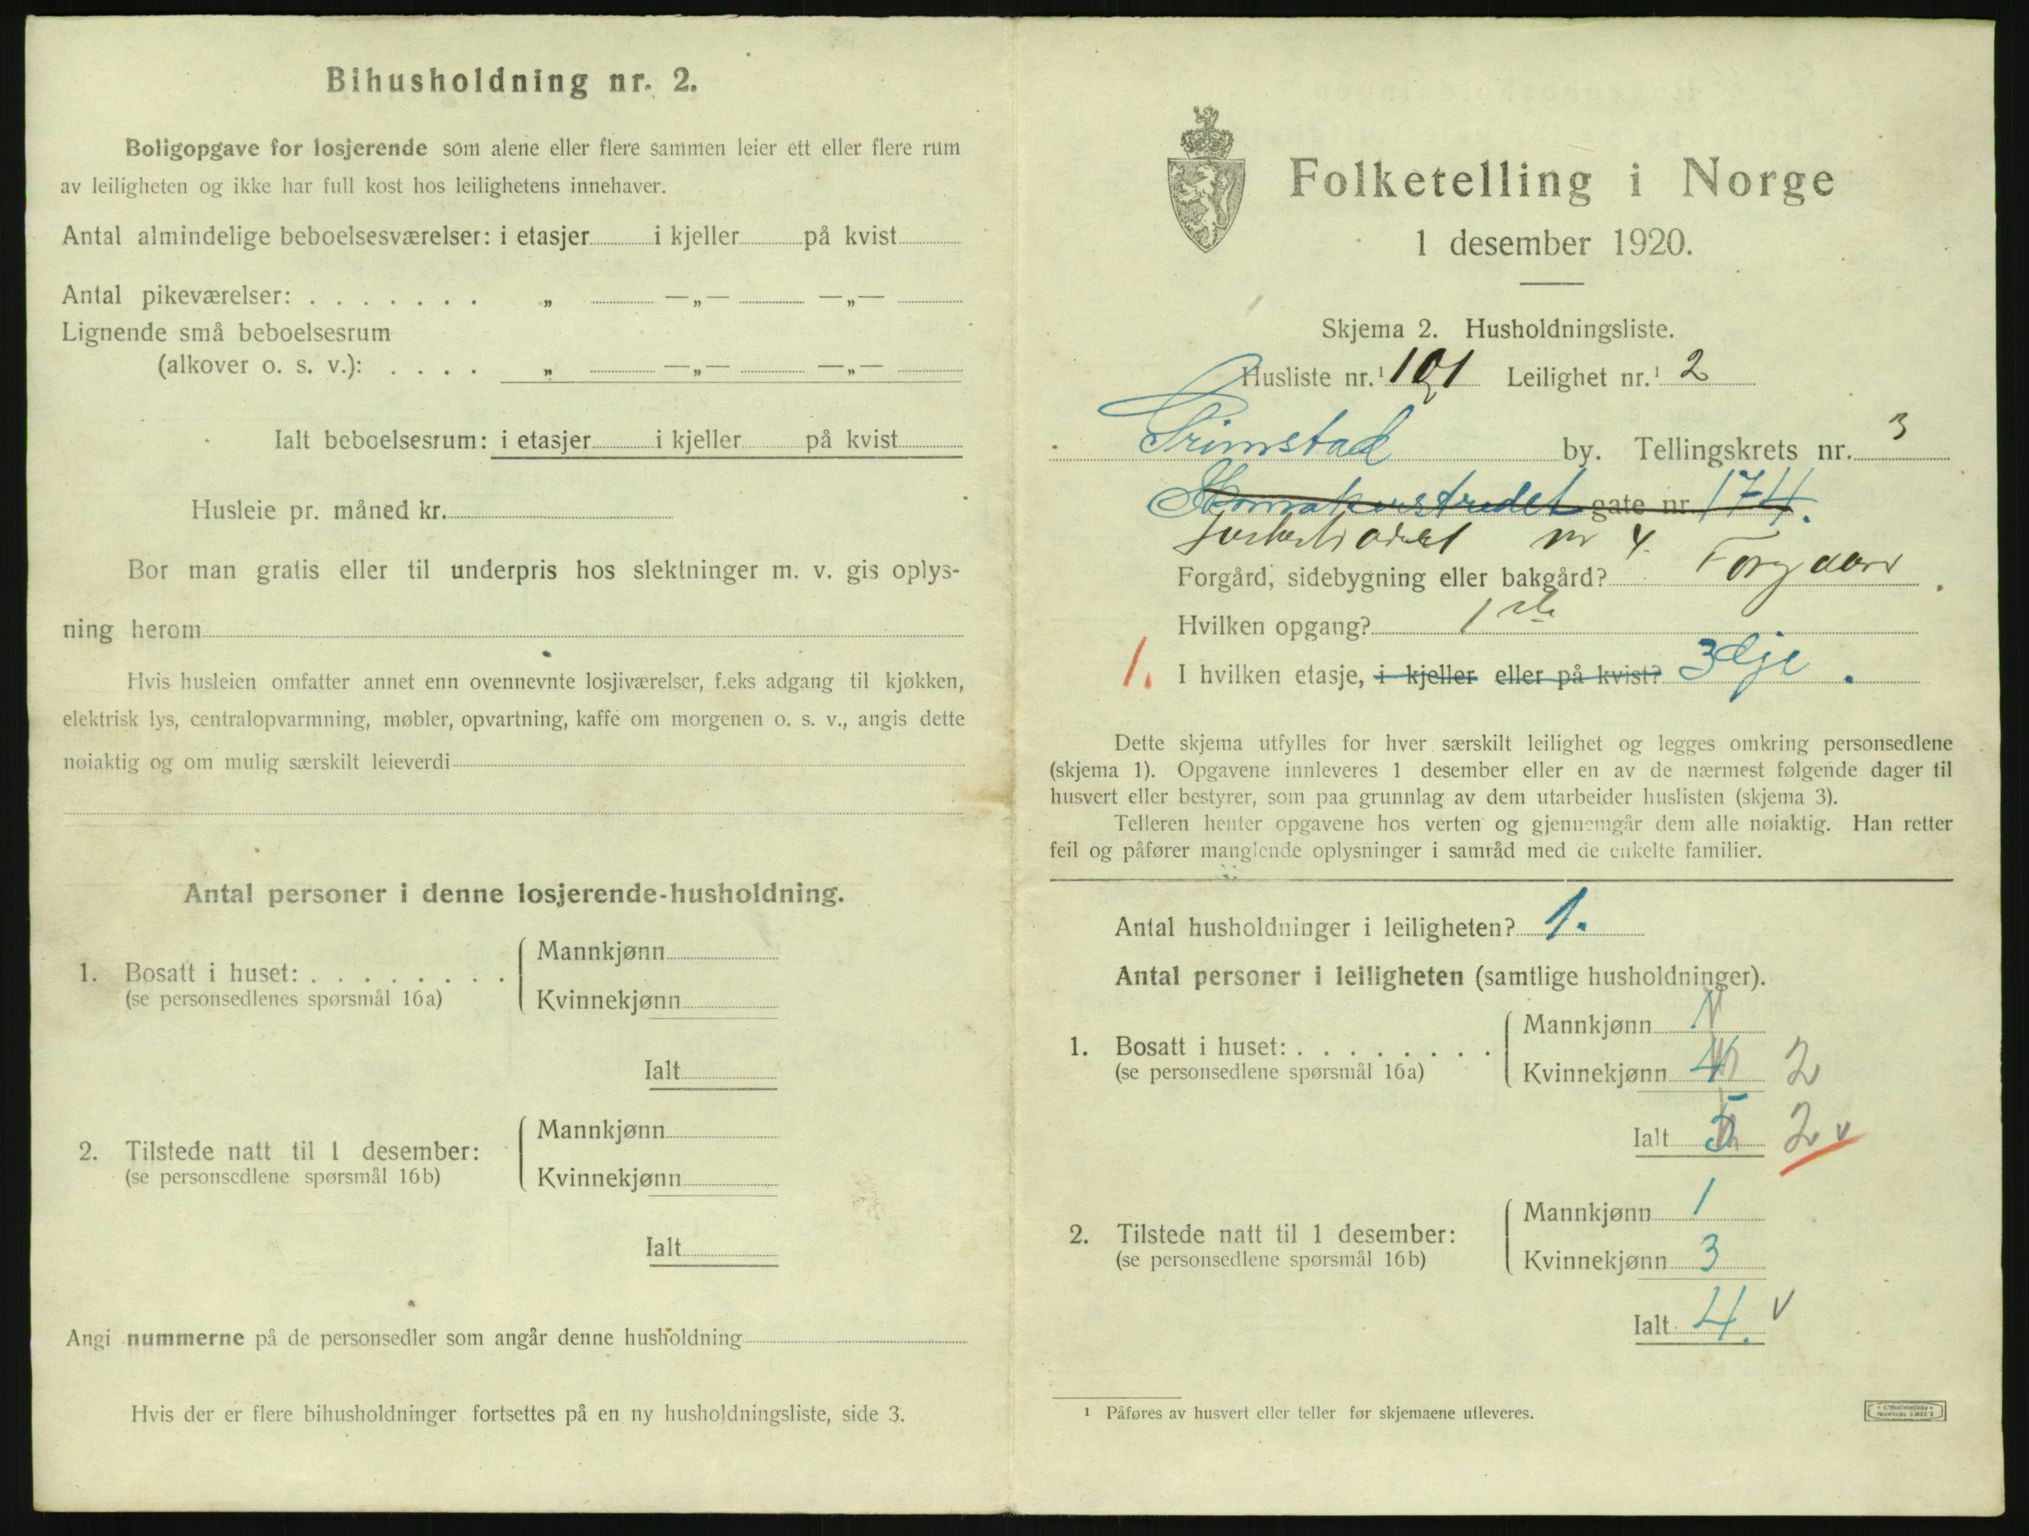 Bihusholdning nr. 2.
Boligopgave for losjerende som alene eller flere sammen leier ett eller flere rum
av leiligheten og ikke har full kost hos leilighetens innehaver.
Antal almindelige beboelsesværelser: i etasjer i kjeller på kvist
Antal pikeværelser: . . . . . . . „ —„— —„—
Lignende små beboelsesrum
(alkover o. s. v.): . . . . „ —„— —„—
Ialt beboelsesrum: i etasjer i kjeller på kvist
Husleie pr. måned kr.
Bor man gratis eller til underpris hos slektninger m. v. gis oplys-
ning herom
Hvis husleien omfatter annet enn ovennevnte losjiværelser, f.eks adgang til kjøkken,
elektrisk lys, centralopvarmning, møbler, opvartning, kaffe om morgenen o. s. v., angis dette
nøiaktig og om mulig særskilt leieverdi
Antal personer i denne losjerende-husholdning.
1. Bosatt i huset: . . . . . . . .
(se personsedlenes spørsmål 16a)
Mannkjønn
Kvinnekjønn
Ialt
2. Tilstede natt til 1 desember:
(se personsedlene spørsmål 16b)
Mannkjønn
Kvinnekjønn
Ialt
Angi nummerne på de personsedler som angår denne husholdning
Hvis der er flere bihusholdninger fortsettes på en ny husholdningsliste, side 3.
Folketelling i Norge
1 desember 1920.
Skjema 2. Husholdningsliste.
Husliste nr.¹ 101 Leilighet nr.¹ 2
Grimstad by. Tellingskrets nr. 3
gate nr. 174.
nr 4.
Forgård, sidebygning eller bakgård? Forgaard
Hvilken opgang? 1ste
1. I hvilken etasje, i kjeller eller på kvist? 3dje.
Dette skjema utfylles for hver særskilt leilighet og legges omkring personsedlene
(skjema 1). Opgavene innleveres 1 desember eller en av de nærmest følgende dager til
husvert eller bestyrer, som paa grunnlag av dem utarbeider huslisten (skjema 3).
Telleren henter opgavene hos verten og gjennemgår dem alle nøiaktig. Han retter
feil og påfører manglende oplysninger i samråd med de enkelte familier.
Antal husholdninger i leiligheten? 1.
Antal personer i leiligheten (samtlige husholdninger).
1. Bosatt i huset: . . . . . . . .
(se personsedlene spørsmål 16a)
Mannkjønn 1
Kvinnekjønn 4 2
Ialt 5 2 v
2. Tilstede natt til 1 desember:
(se personsedlene spørsmål 16b)
Mannkjønn 1
Kvinnekjønn 3
Ialt 4. v
¹ Påføres av husvert eller teller før skjemaene utleveres.